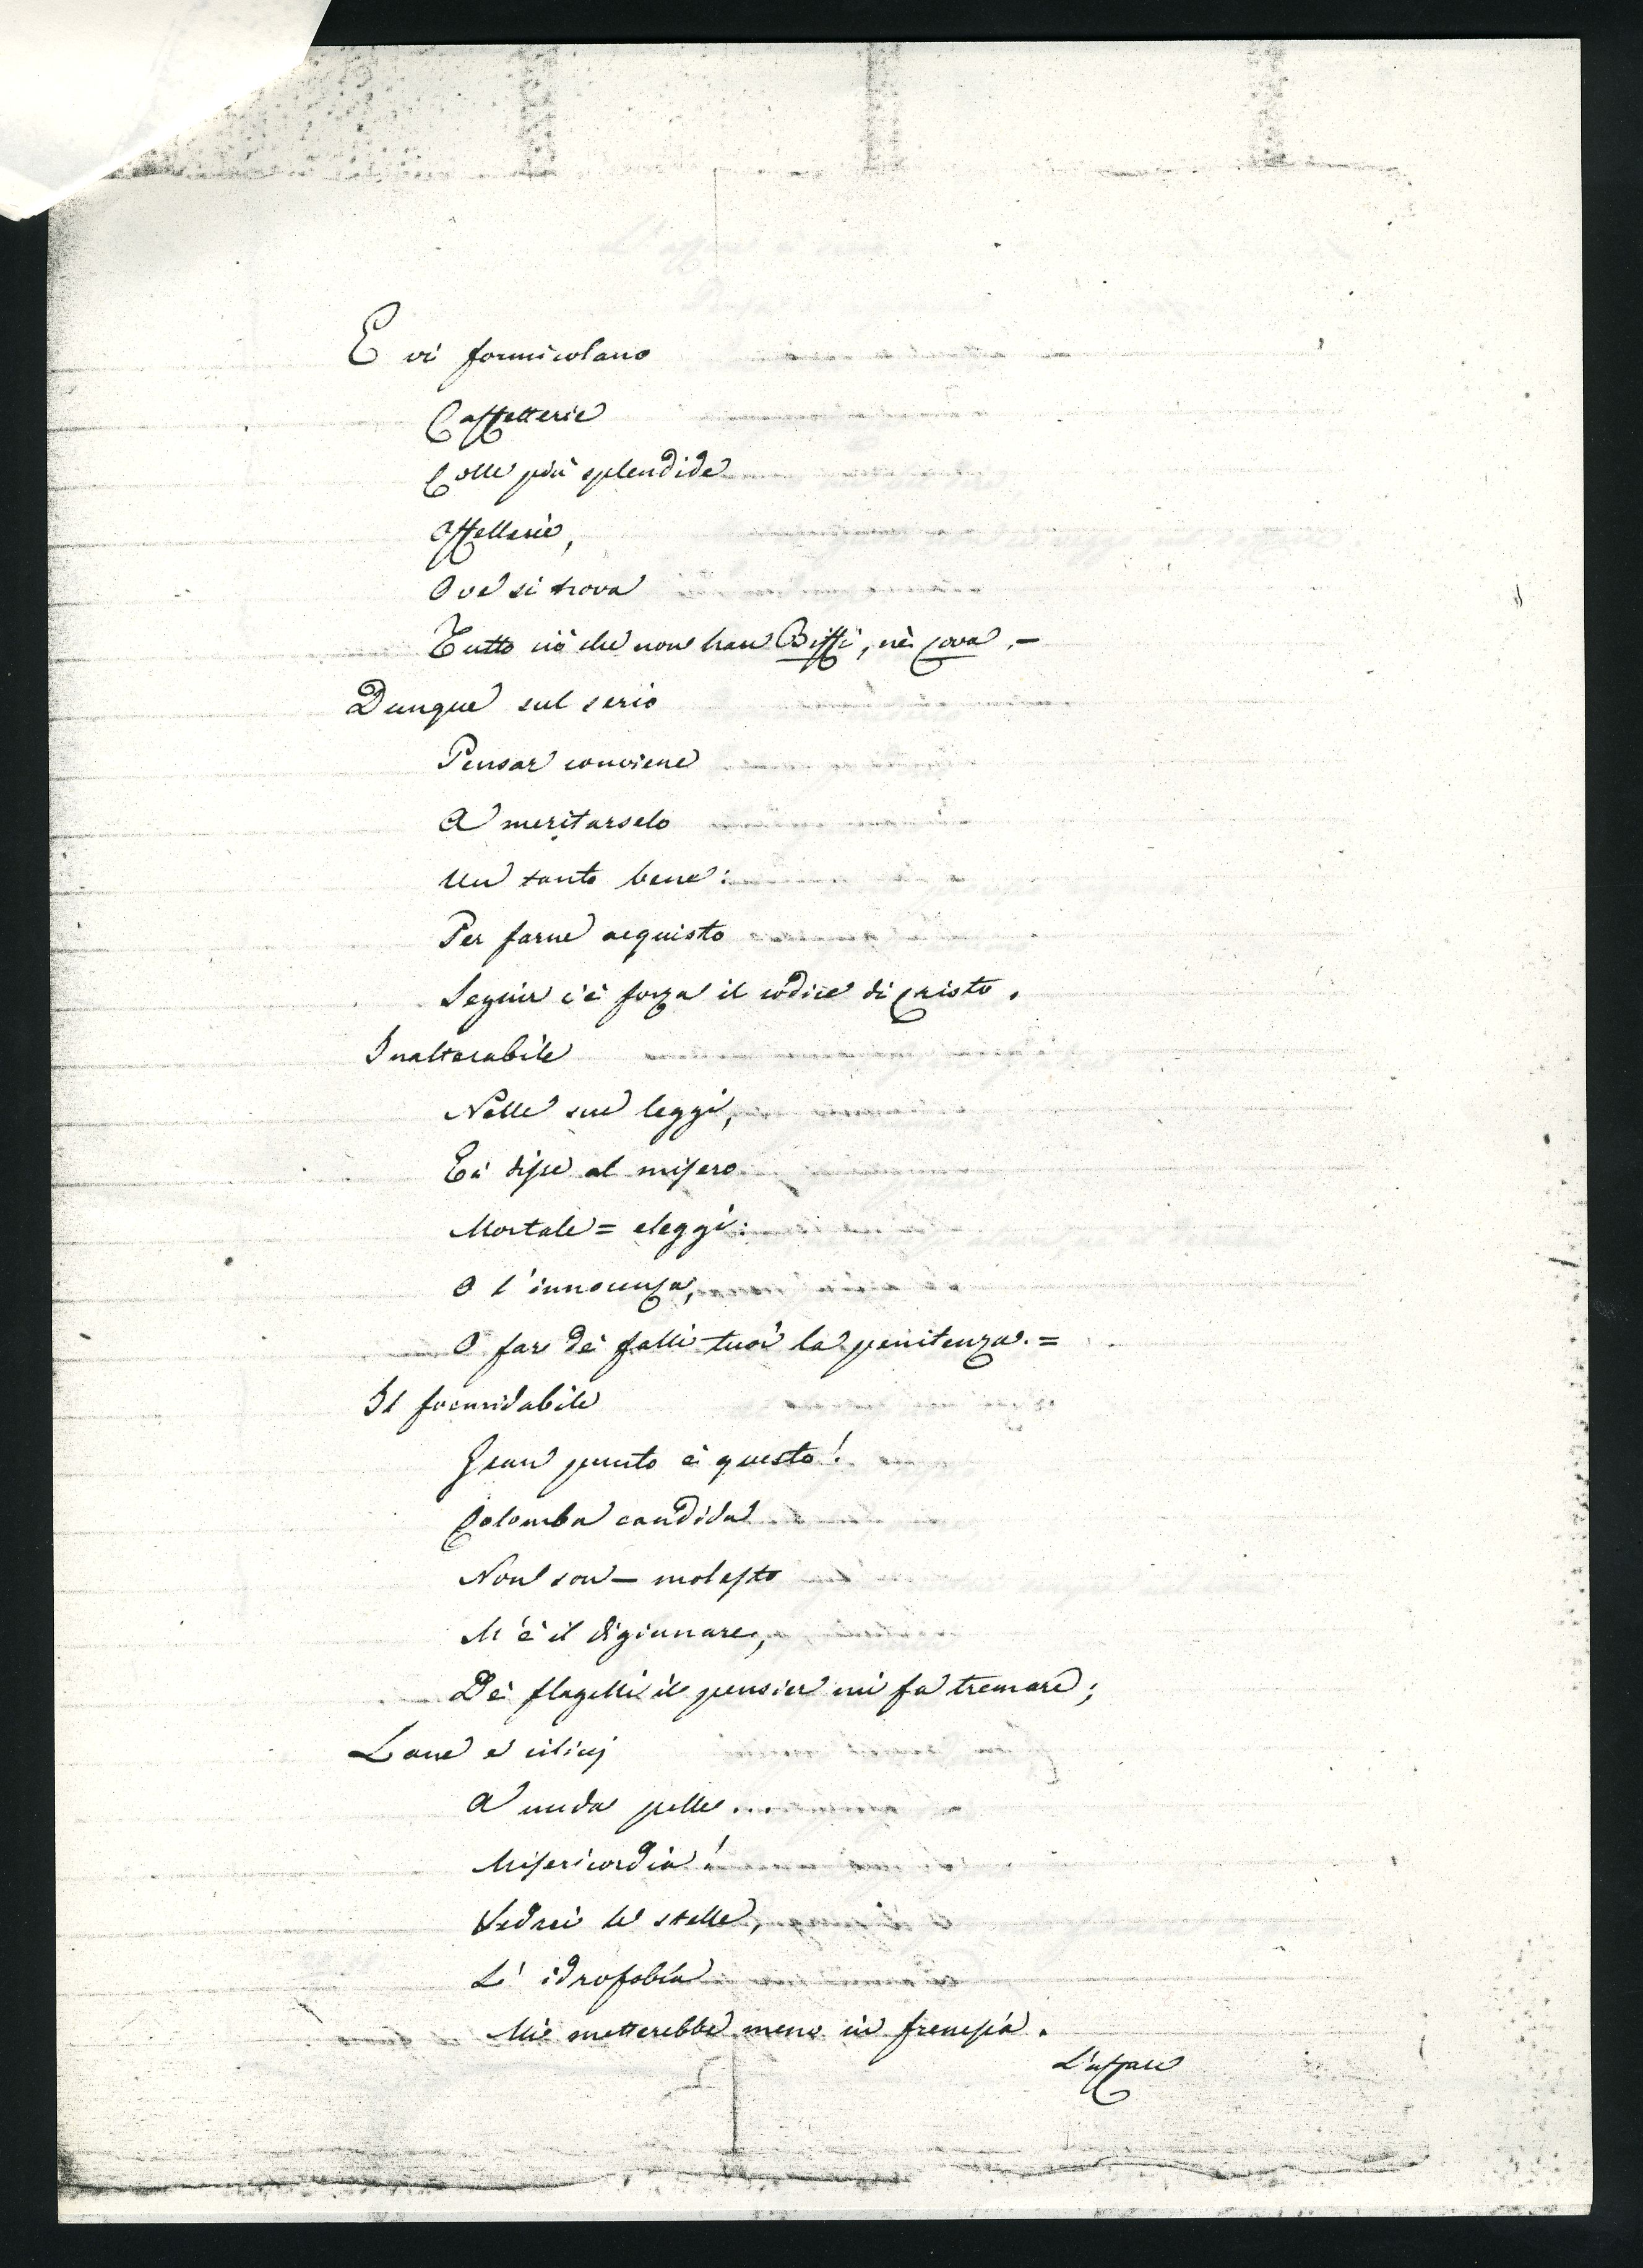 E vi formicolano
Caffetterie
Colle più splendide
Offellerie,
Ove si trova
Tutto ciò che non han Biffi, nè Cova. –
Dunque sul serio
Pensar conviene
A meritarselo
Un tanto bene:
Per farne acquisto
Seguir c'è forza il codice di Cristo.
Inalterabile
Nelle sue leggi,
Ei disse al misero
Mortale = eleggi:
O l'innocenza,
O far de' falli tuoi la penitenza. =
Il formidabile
Gran punto è questo!
Colomba candida
Non son – molesto
M'è il digiunare,
De' flagelli il pensier mi fa tremare;
Lane e cilicj
A nuda pelle...
Misericordia!
Vedrei le stelle,
L'idrofobia
Mi metterebbe meno in frenesia.
L'affare